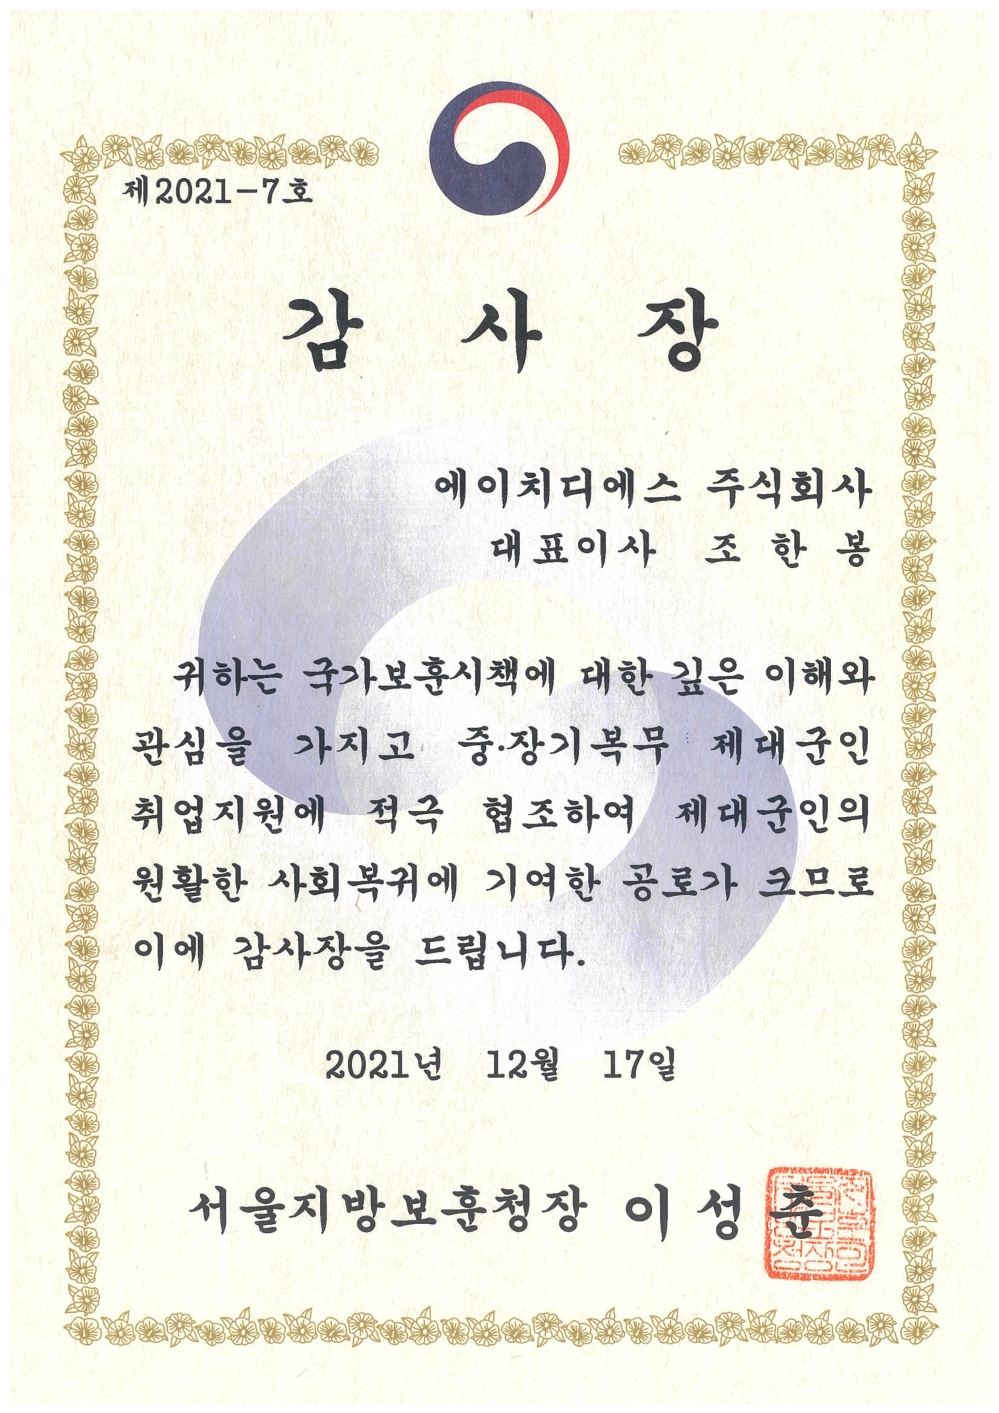 제2021-7호
감 사 장
에이치디에스 주식회사
대표이사 조 한 봉
귀하는 국가보훈시책에 대한 깊은 이해와
관심을 가지고 중·장기복무 제대군인
취업지원에 적극 협조하여 제대군인의
원활한 사회복귀에 기여한 공로가 크므로
이에 감사장을 드립니다.
2021년 12월 17일
서울지방보훈청장 이 성 춘